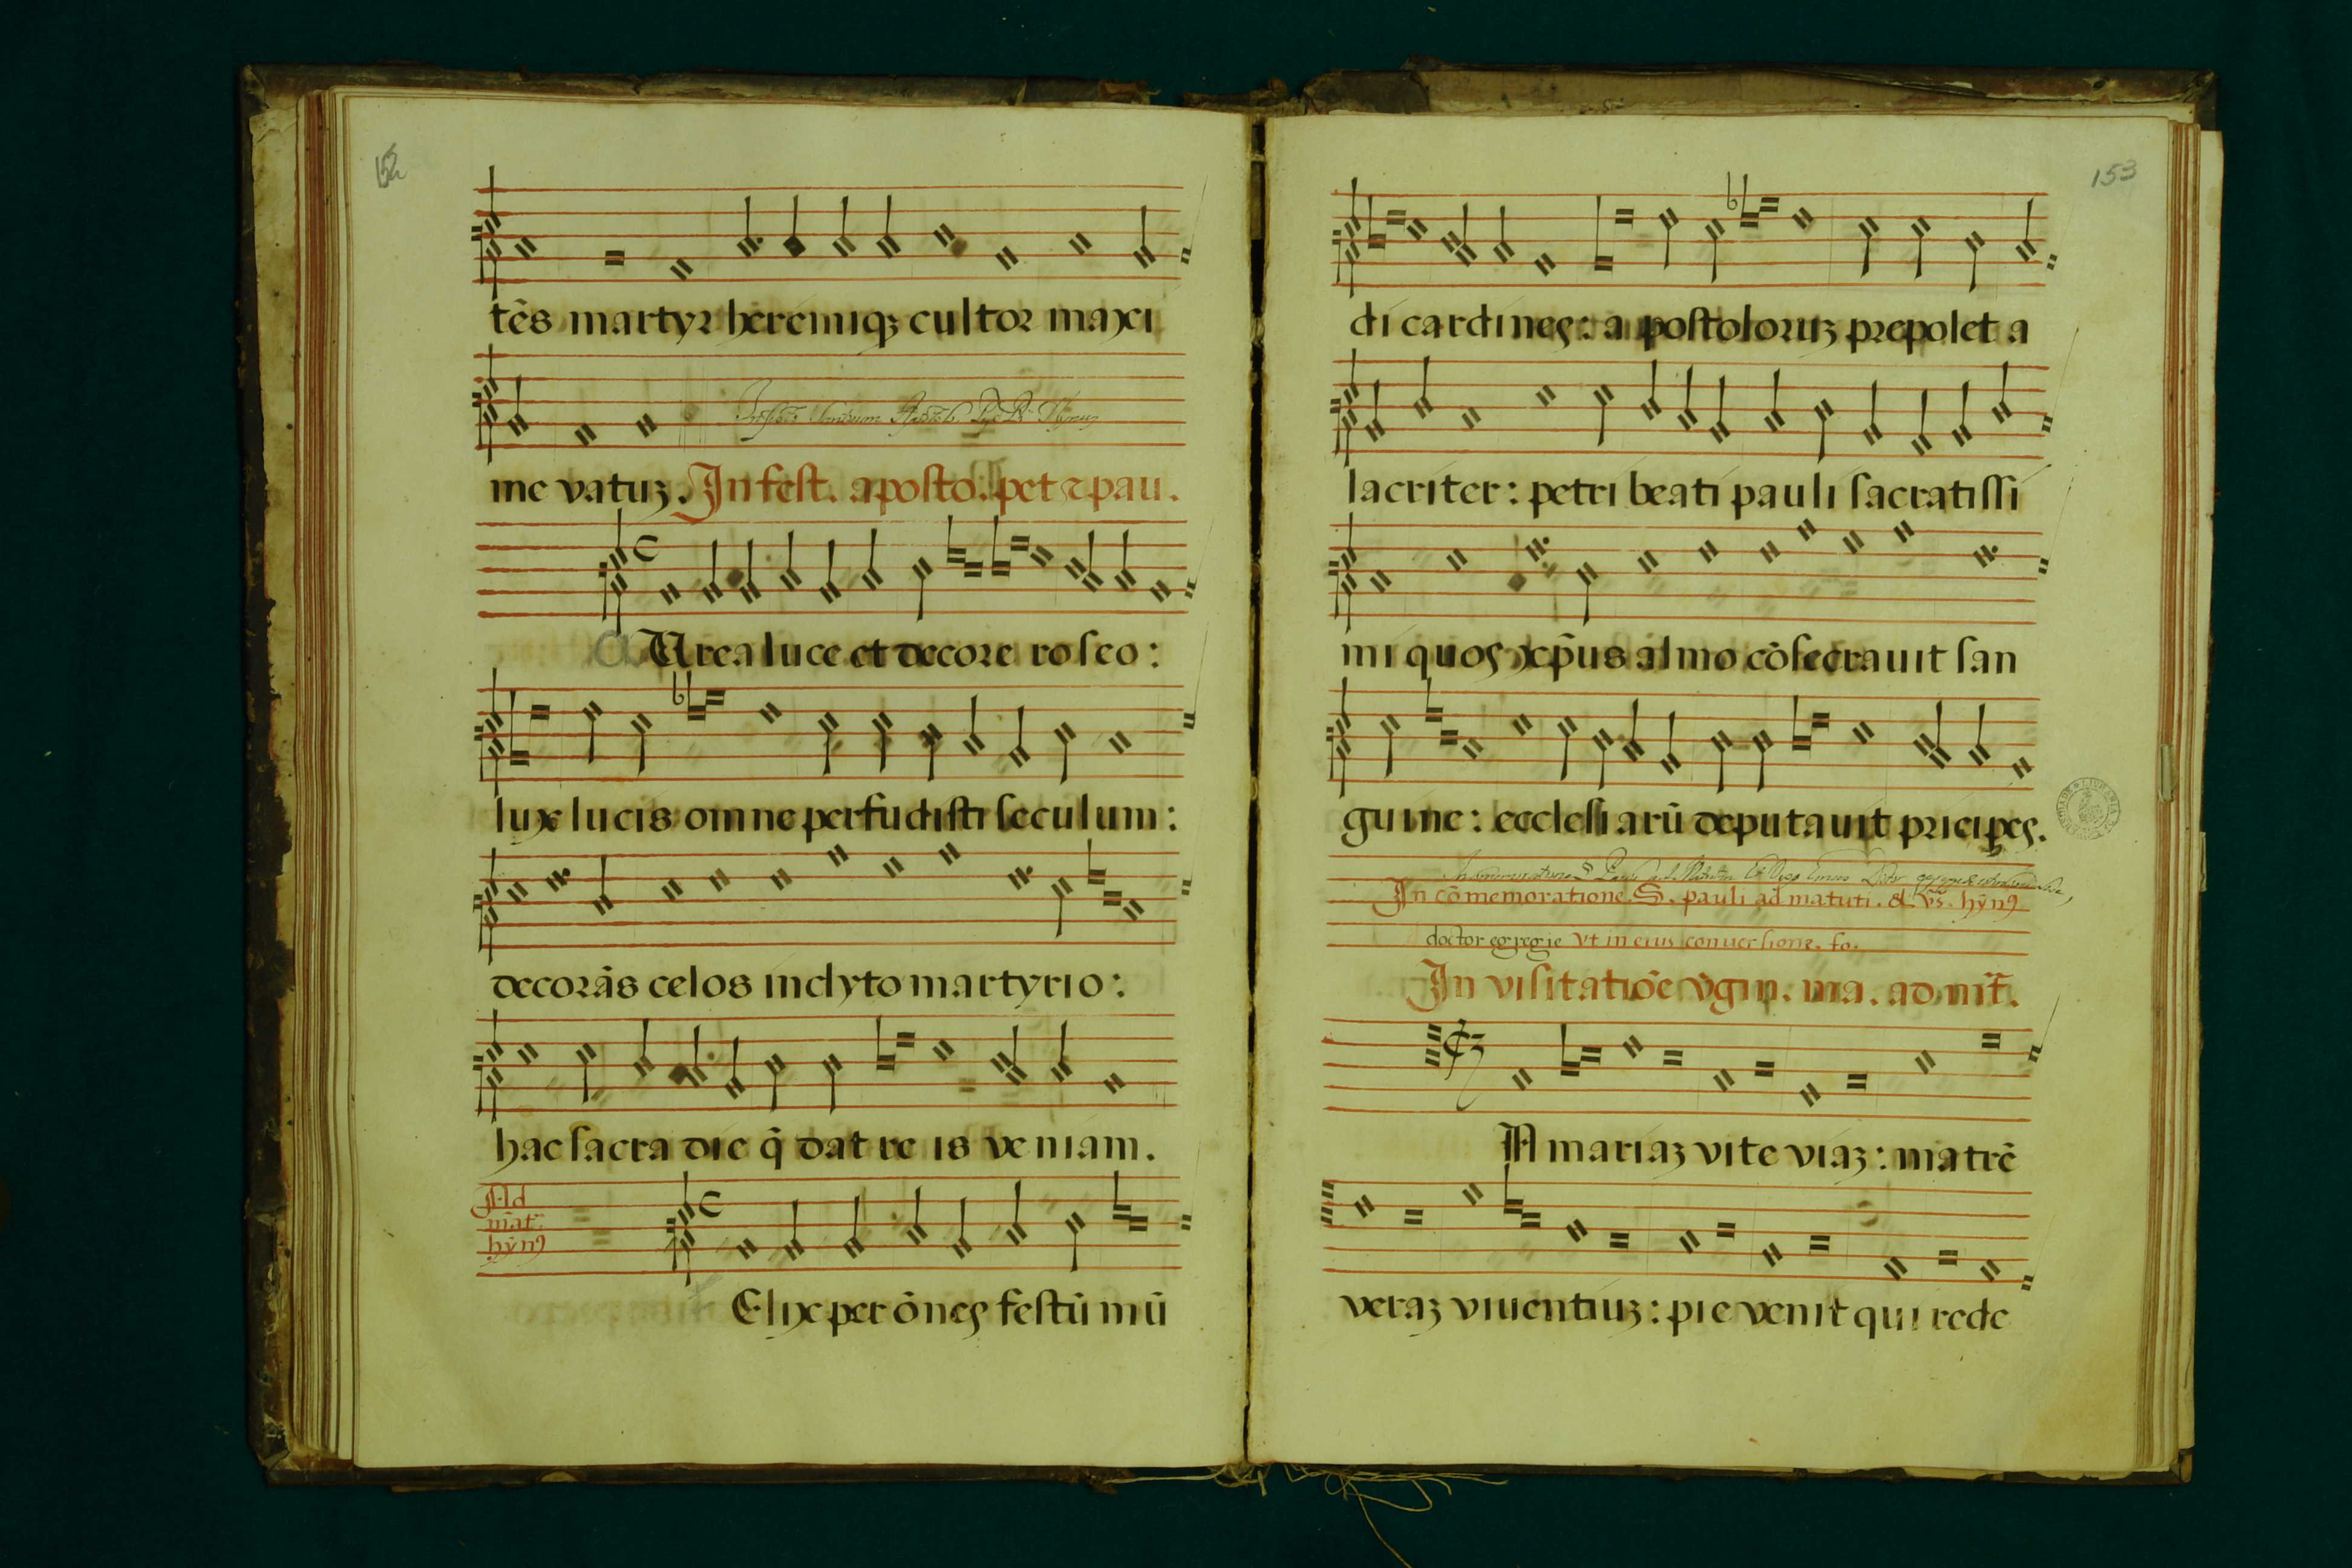 152
tẽs martyr heremiqȝ cultor maxi
me vatuȝ. In fest. aposto. pet ⁊ pau.
AUrea luce et decore roseo:
lux lucis omne perfudisti seculum:
decorãs celos inclyto martyrio:
hac sacra die q̃ dat re is veniam.
Ad
mat.
hỹnꝰ
Elix per õnes festũ mũ
153
di cardines: apostoloruȝ prepolet a
lacriter: petri beati pauli sacratissi
mi quos xp̃us almo cõsecrauit san
guine: ecclesiarũ deputauit pricipes.
In cõmemoratione. S. pauli ad matuti. & vr̃s. hỹnꝰ
doctor egregie vt in eius conuersione. fo.
In visitatiõe vgin. ma. ad mr̃.
IA mariaȝ vite viaȝ: matrẽ
veraȝ viuentiuȝ: pie venit qui rede